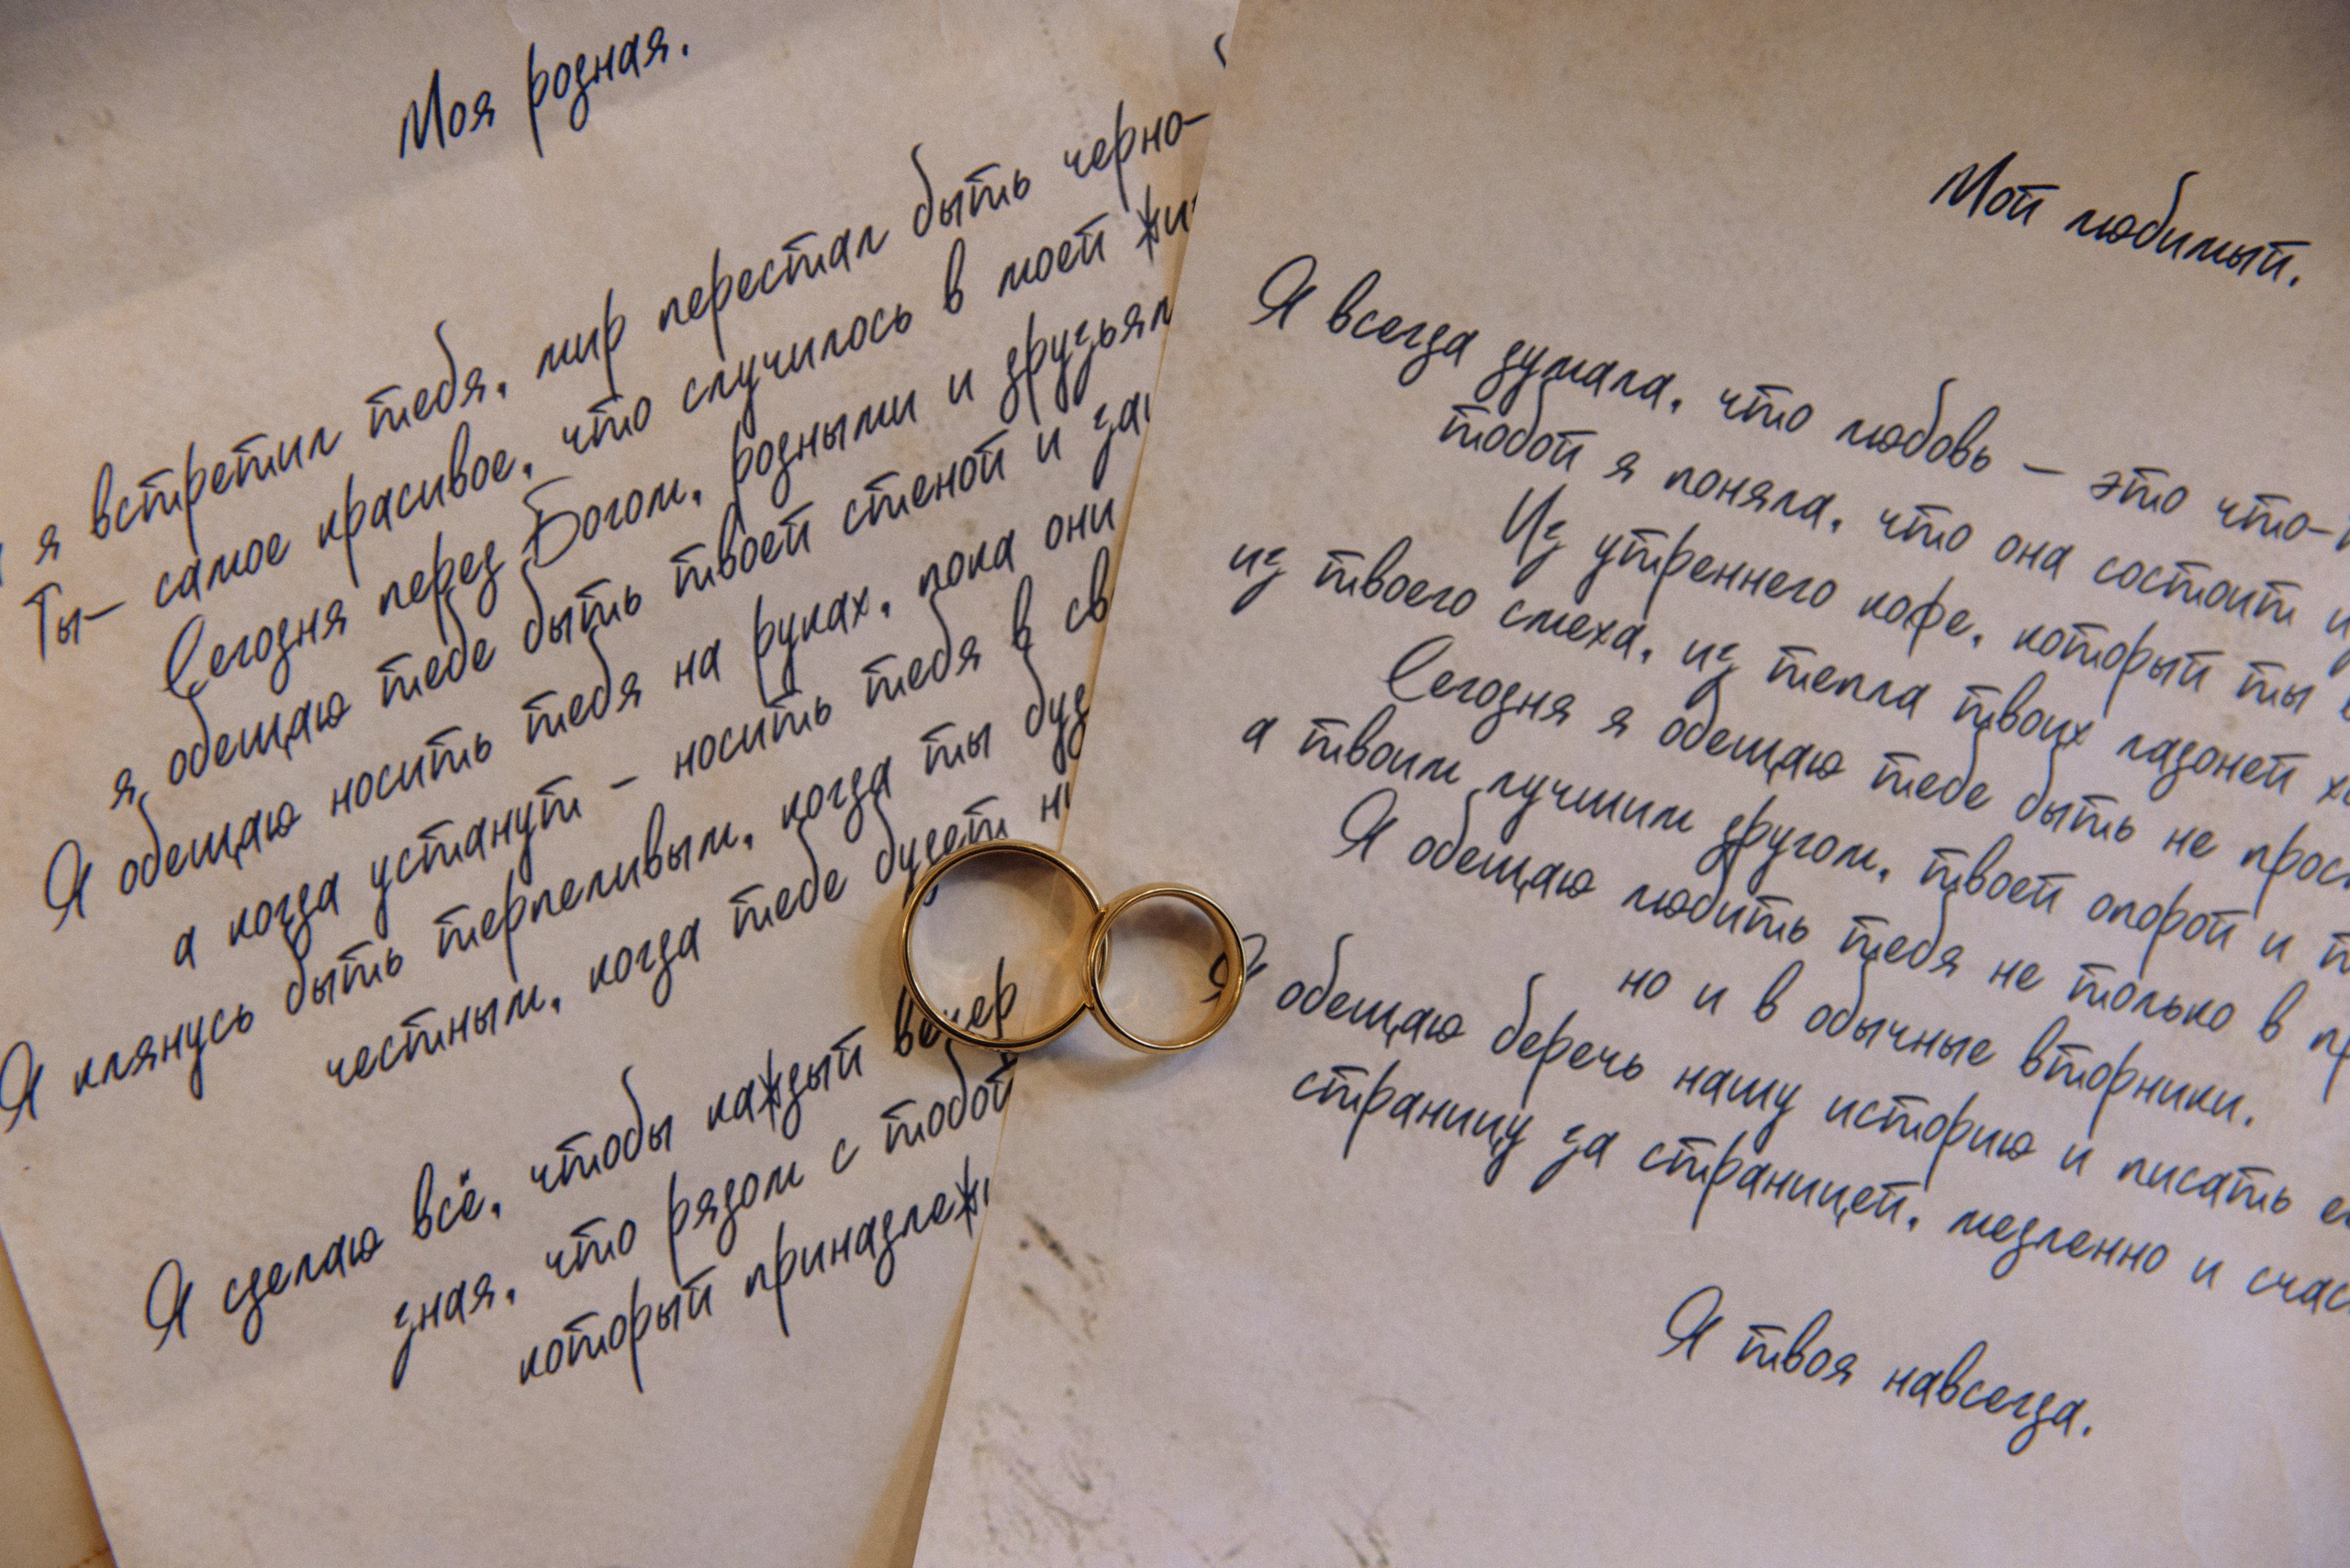 Моя родная.
я встретил тебя, мир перестал быть черно-
Ты — самое красивое, что случилось в моей
Сегодня перед Богом, родными и
я обещаю тебе быть твоей стеной и
Я обещаю носить тебя на руках, пока они
а когда устанут — носить тебя в
Я клянусь быть терпеливым, когда ты
честным, когда тебе будет
Я сделаю всё, чтобы каждый вечер
зная, что рядом с тобой
который
Мой любимый.
Я всегда думала, что любовь — это
тобой я поняла, что она состоит
Из утреннего кофе, который ты
из твоего смеха, из тепла твоих ладоней
Сегодня я обещаю тебе быть не
а твоим лучшим другом, твоей опорой и
Я обещаю любить тебя не только в
но и в обычные вторники.
Я обещаю беречь нашу историю и писать
страницу за страницей, медленно и
Я твоя навсегда.